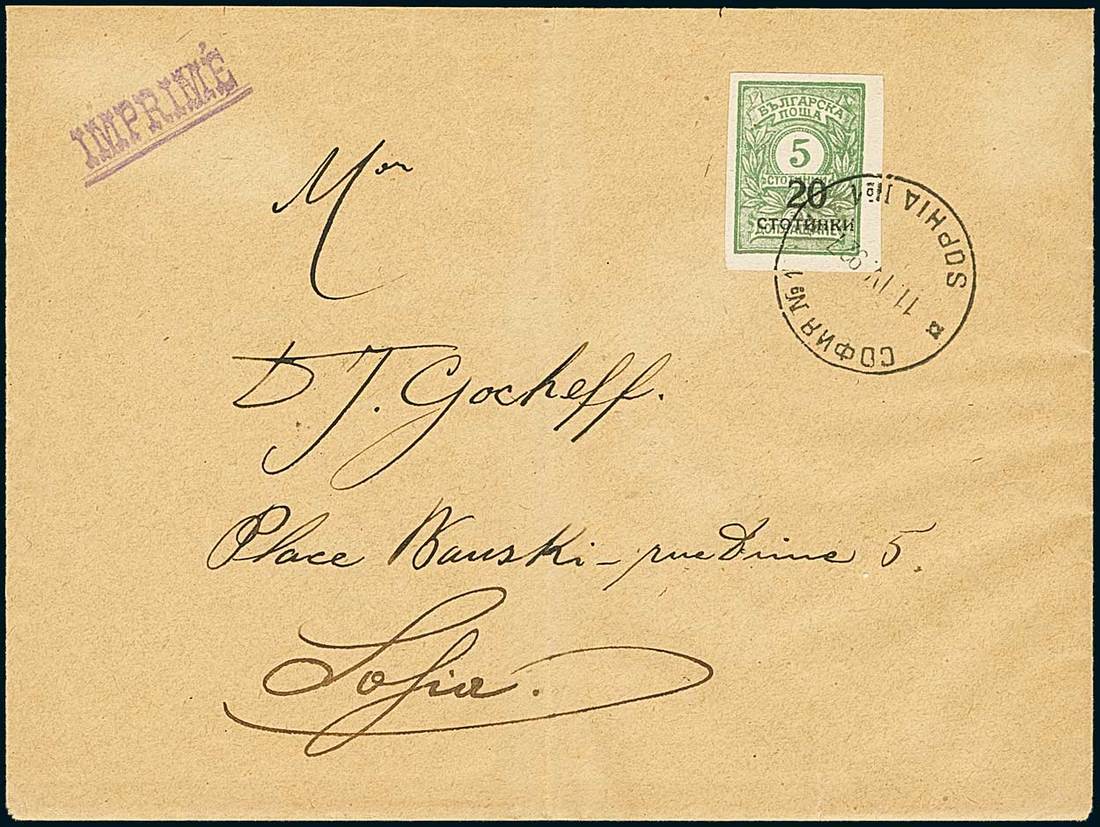 IMPRIMÉ
БЪЛГАРСКА
ПОЩА
5
СТОТИНКИ
20
СТОТИНКИ
СОФИЯ № 1
SOPHIA № 1
11. IV. 927
Mor
D J. Gocheff.
Place - rue 5.
Sofia.